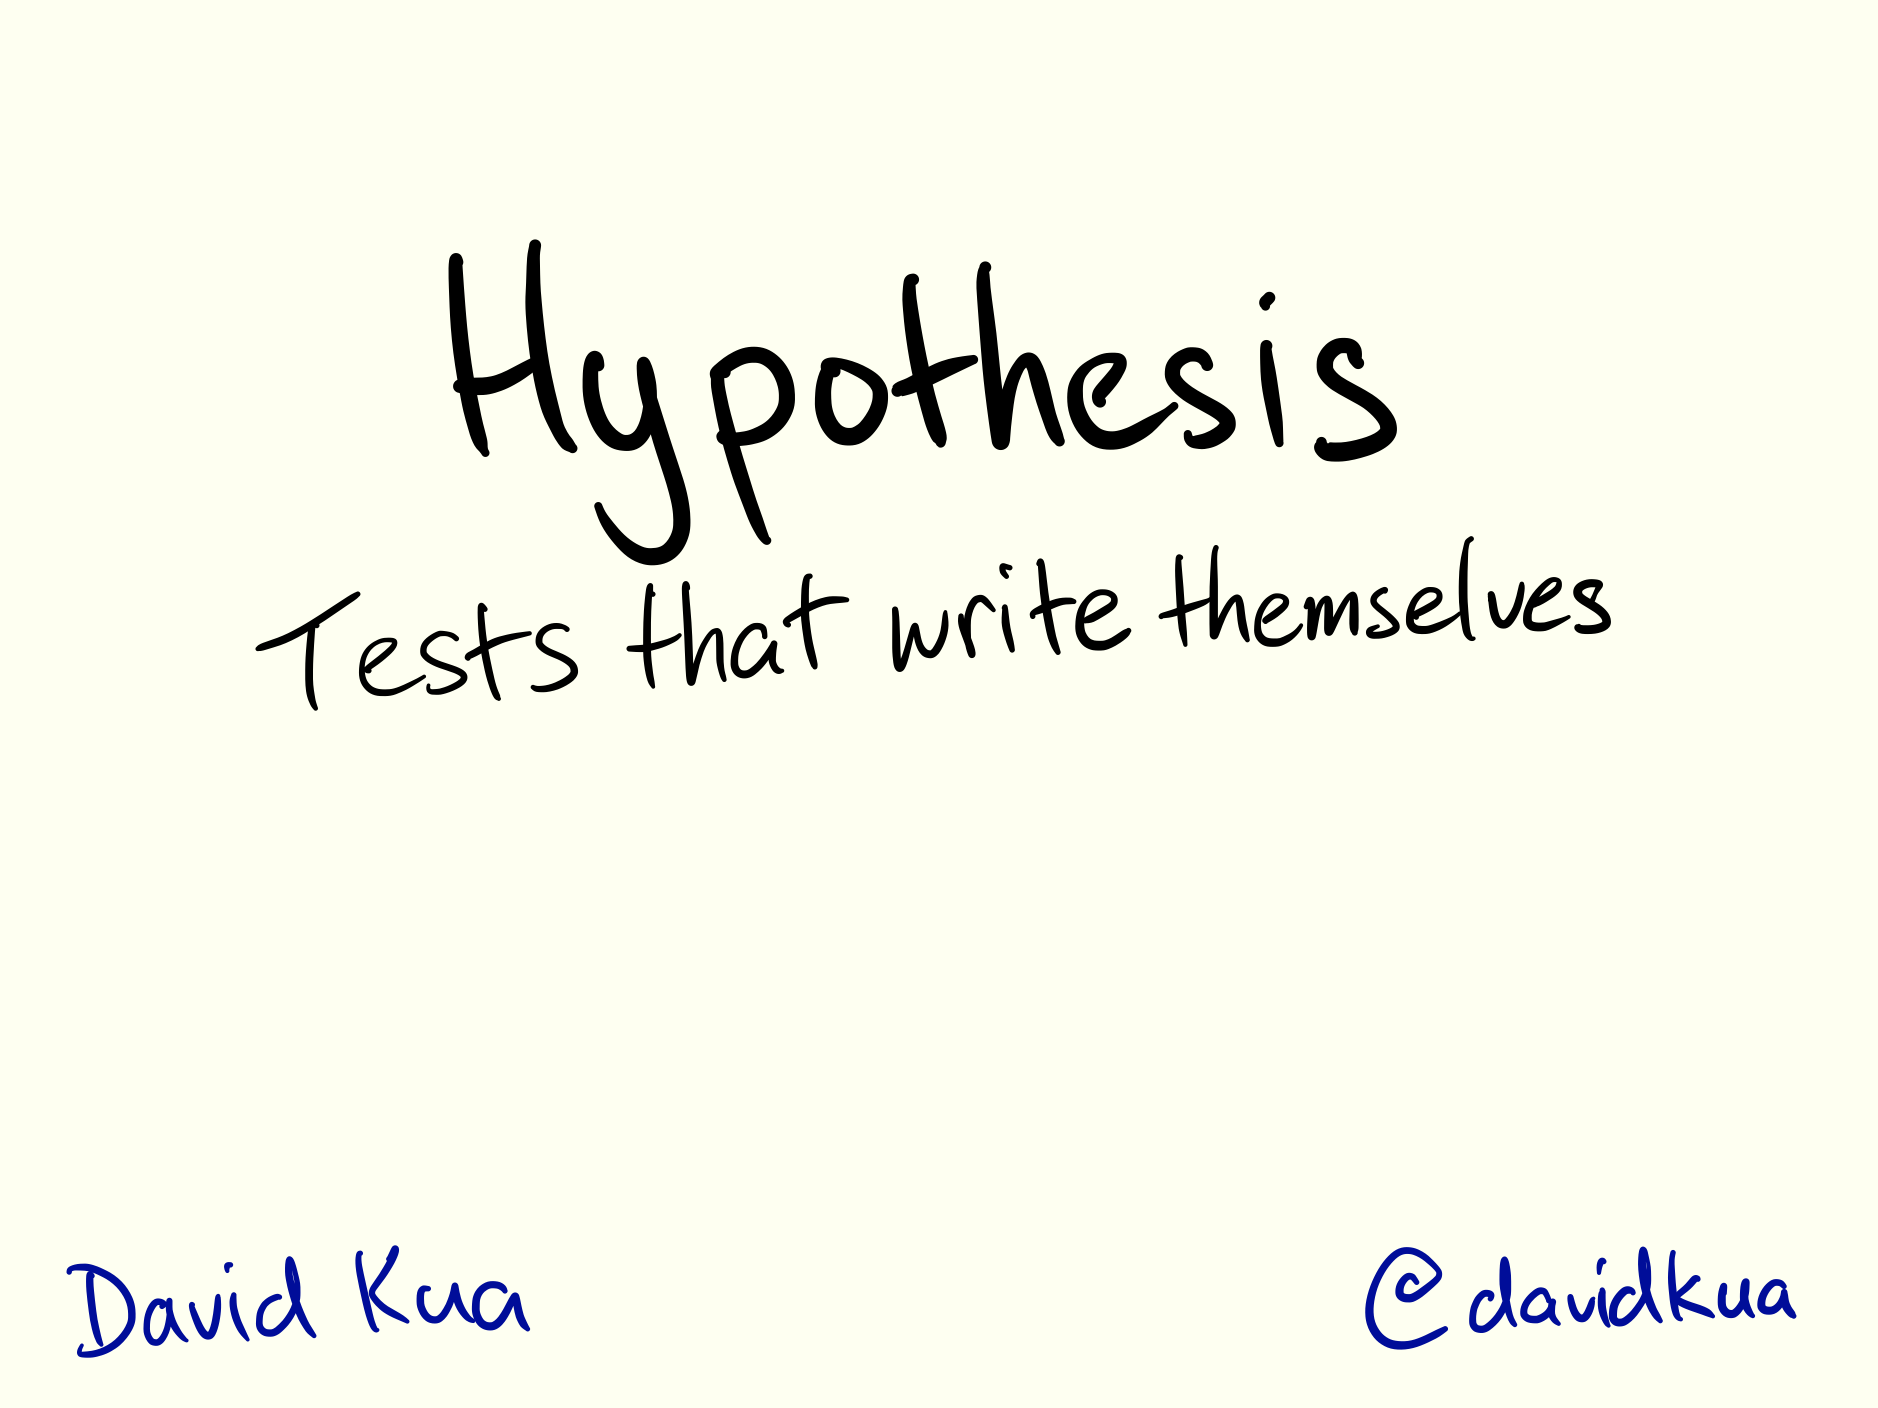 Hypothesis
Tests that write themselves
David Kua
@davidkua